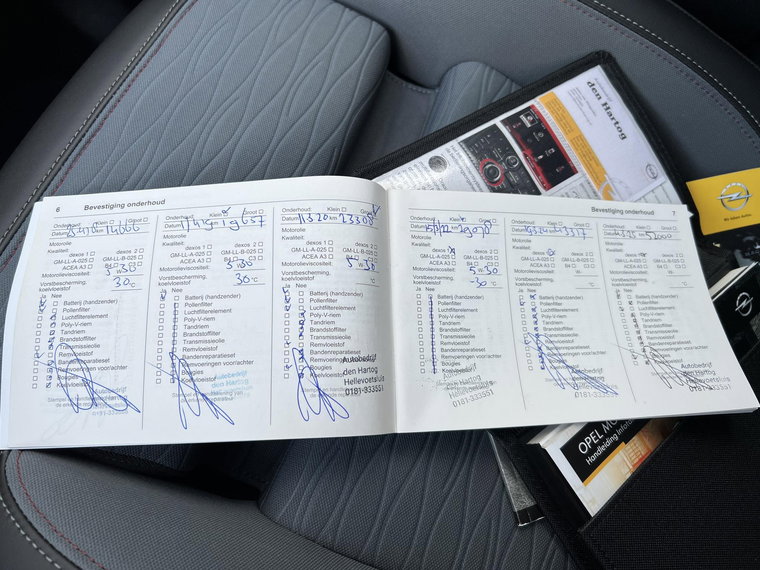 6 Bevestiging onderhoud
Onderhoud: Klein Groot
Datum km 14066
Motorolie
Kwaliteit:
dexos 1 dexos 2
GM-LL-A-025 GM-LL-B-025
ACEA A3 B4 C3
Motorolieviscositeit: 5 W 30
Vorstbescherming,
koelvloestof 30 °C
Ja Nee
Batterij (handzender)
Pollenfilter
Luchtfilterelement
Poly-V-riem
Tandriem
Brandstoffilter
Transmissieolie
Remvloeistof
Bandenreparatieset
Remvoeringen voor/achter
Bougies
Koelvloeistof
0181-333551
Onderhoud: Klein Groot
Datum km 19657
Motorolie
Kwaliteit:
dexos 1 dexos 2
GM-LL-A-025 GM-LL-B-025
ACEA A3 B4 C3
Motorolieviscositeit: 5 W 30
Vorstbescherming,
koelvloestof 30 °C
Ja Nee
Batterij (handzender)
Pollenfilter
Luchtfilterelement
Poly-V-riem
Tandriem
Brandstoffilter
Transmissieolie
Remvloeistof
Bandenreparatieset
Remvoeringen voor/achter
Bougies
Koelvloeistof
Autobedrijf
den Hartog
Hellevoetsluis
Onderhoud: Klein Groot
Datum 11 3 20 km 23308
Motorolie
Kwaliteit:
dexos 1 dexos 2
GM-LL-A-025 GM-LL-B-025
ACEA A3 B4 C3
Motorolieviscositeit: 5 W 30
Vorstbescherming,
koelvloestof °C
Ja Nee
Batterij (handzender)
Pollenfilter
Luchtfilterelement
Poly-V-riem
Tandriem
Brandstoffilter
Transmissieolie
Remvloeistof
Bandenreparatieset
Remvoeringen voor/achter
Bougies
Koelvloeistof
Autobedrijf
den Hartog
Hellevoetsluis
0181-333551
Bevestiging onderhoud 7
Onderhoud: Klein Groot
Datum km 29070
Motorolie
Kwaliteit:
dexos 1 dexos 2
GM-LL-A-025 GM-LL-B-025
ACEA A3 B4 C3
Motorolieviscositeit: 5 W 30
Vorstbescherming,
koelvloestof -30 °C
Ja Nee
Batterij (handzender)
Pollenfilter
Luchtfilterelement
Poly-V-riem
Tandriem
Brandstoffilter
Transmissieolie
Remvloeistof
Bandenreparatieset
Remvoeringen voor/achter
Bougies
Koelvloeistof
den Hartog
Hellevoetsluis
0181-333551
Onderhoud: Klein Groot
Datum km 43317
dexos 1 dexos 2
GM-LL-A-025 GM-LL-B-025
ACEA A3 B4 C3
Motorolieviscositeit:
Vorstbescherming,
koelvloestof °C
Ja Nee
Batterij (handzender)
Pollenfilter
Luchtfilterelement
Poly-V-riem
Tandriem
Brandstoffilter
Transmissieolie
Remvloeistof
Bandenreparatieset
Remvoeringen voor/achter
Bougies
Koelvloeistof
0181-333551
Onderhoud: Klein Groot
Datum km 52000
Motorolie
Kwaliteit:
dexos 1 dexos 2
GM-LL-A-025 GM-LL-B-025
ACEA A3 B4 C3
Motorolieviscositeit:
Vorstbescherming,
koelvloestof °C
Ja Nee
Batterij (handzender)
Pollenfilter
Luchtfilterelement
Poly-V-riem
Tandriem
Brandstoffilter
Transmissieolie
Remvloeistof
Bandenreparatieset
Remvoeringen voor/achter
Bougies
Koelvloeistof
Autobedrijf
den Hartog
Hellevoetsluis
0181-333551
den Hartog
OPEL
Handleiding